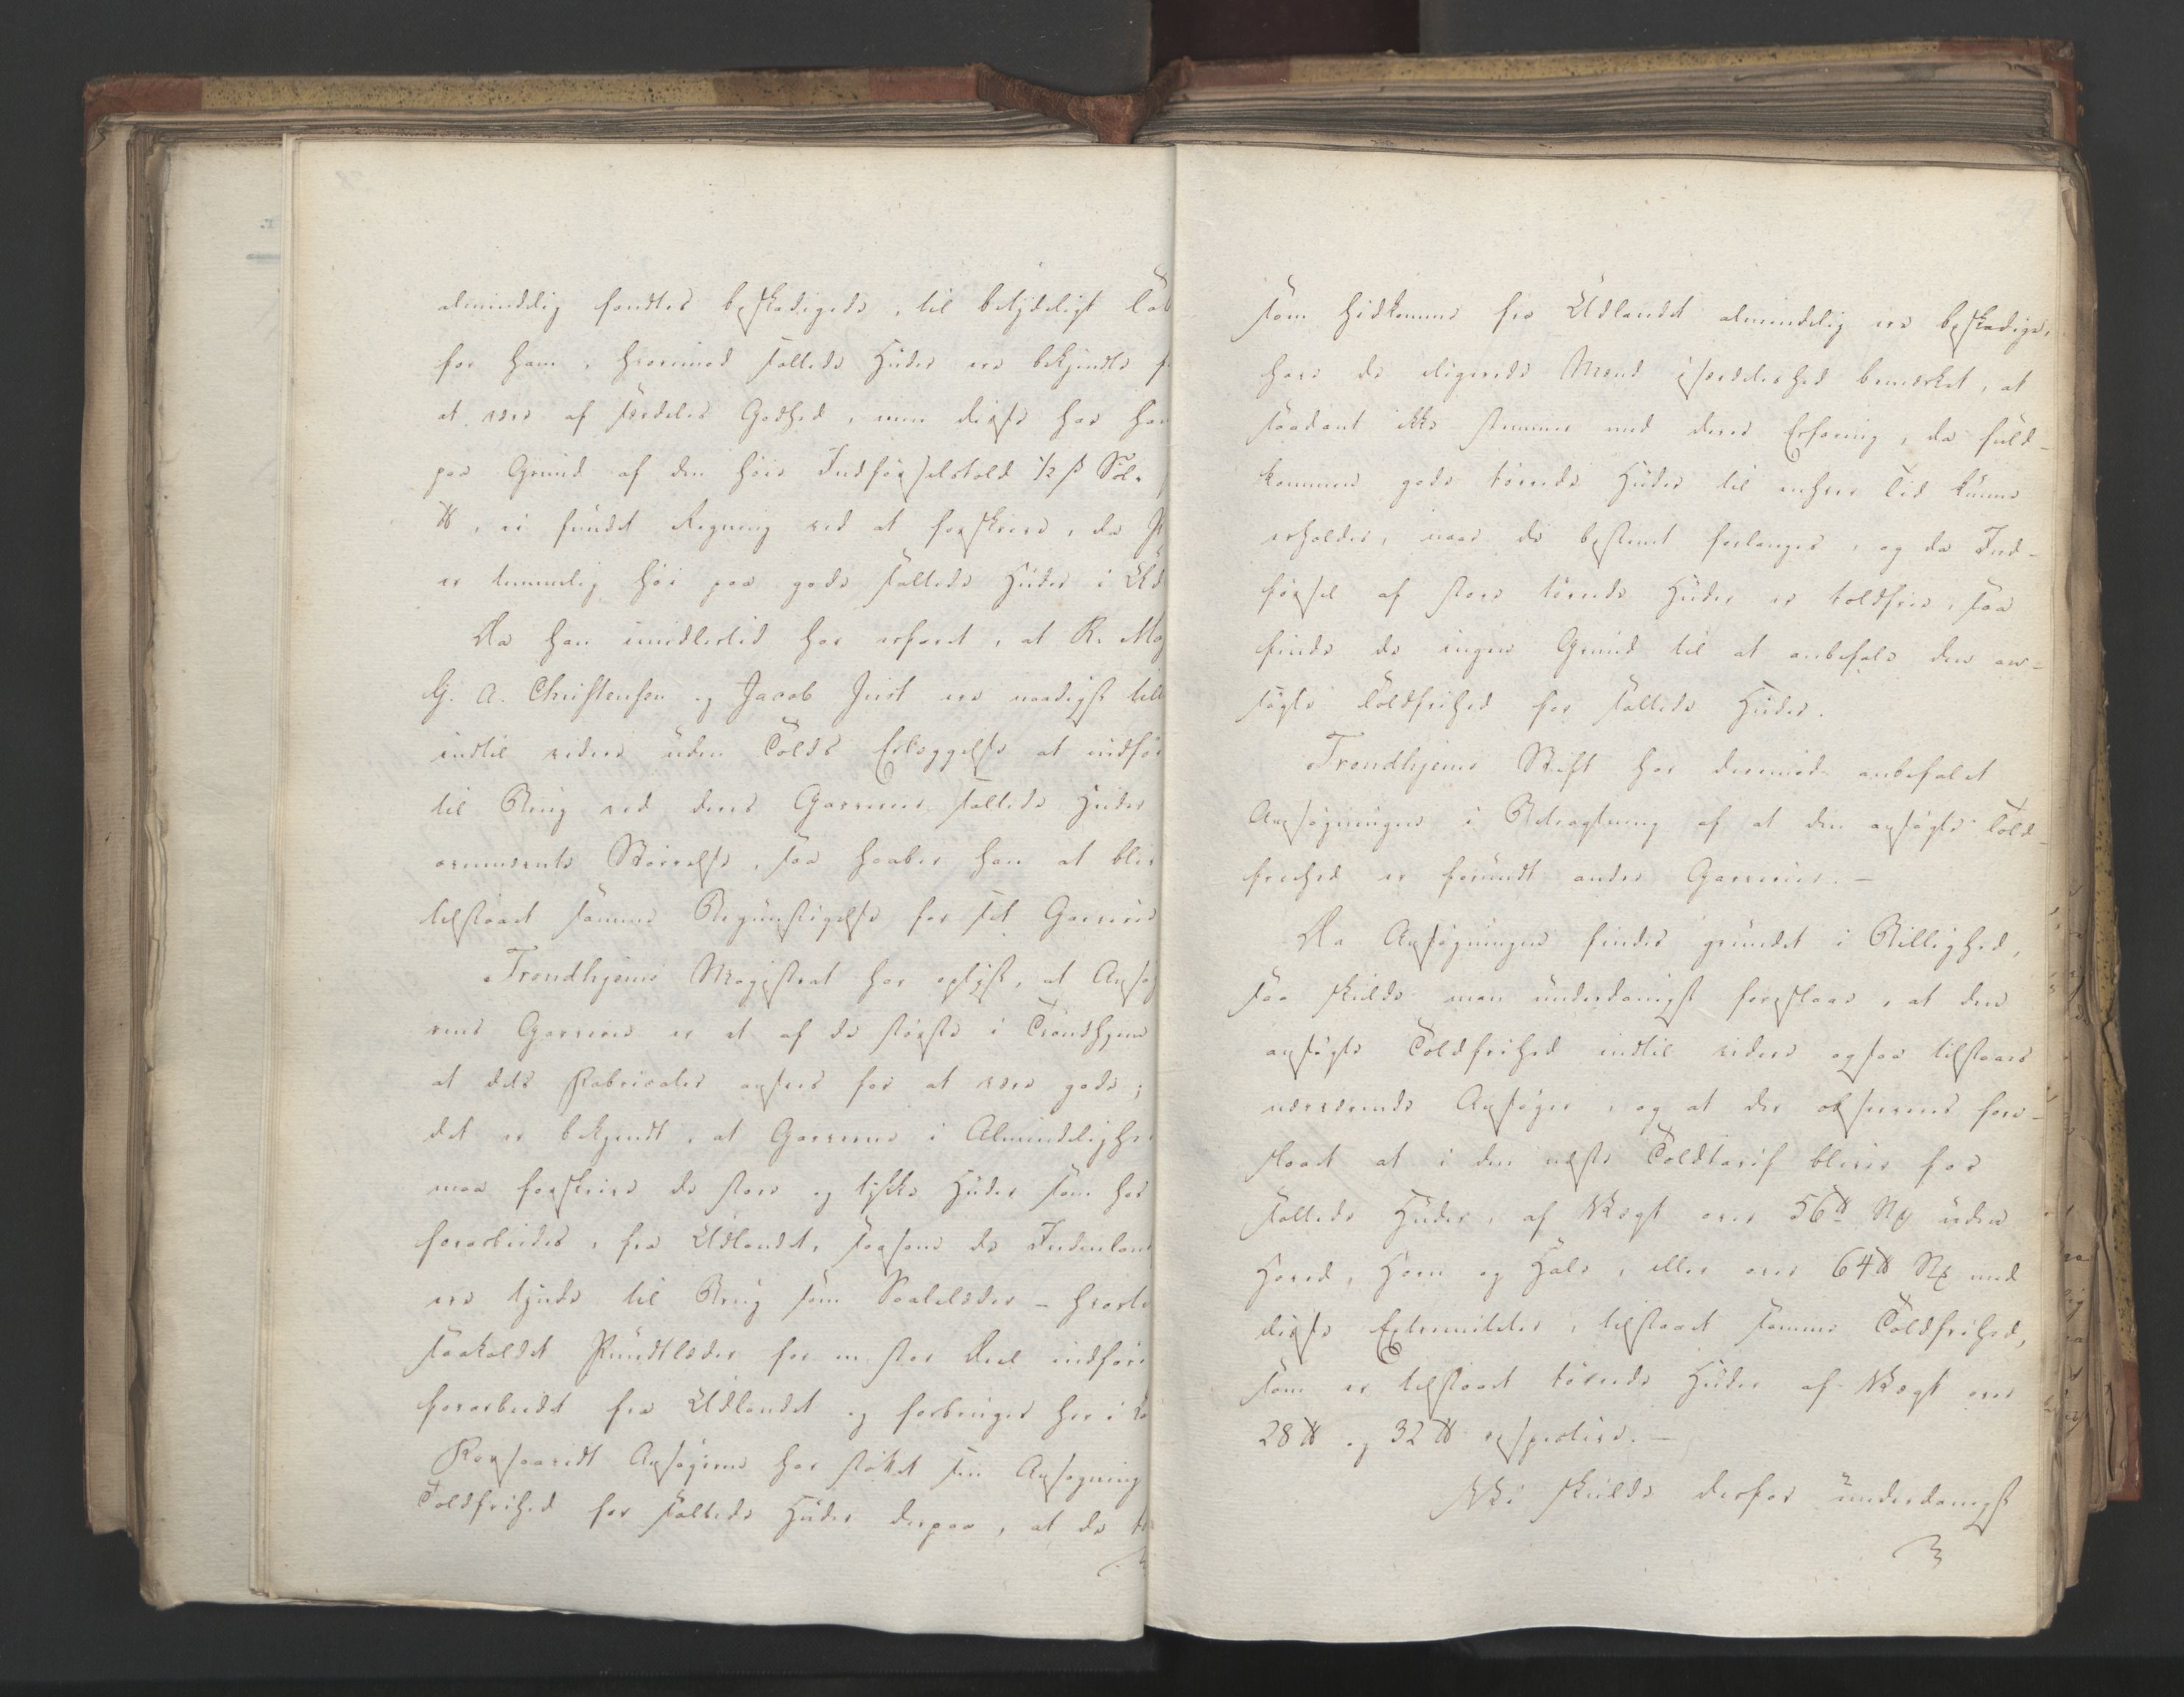 almindelig fandtes beskadigede, til betydeligt Tab
for ham, hvorimod saltede Huder ere bekjendte f
at være af særdeles Godhed, men disse har han
paa Grund af den høie Indførselstold ½ ß Søl.
℔, ei fundet Regning ved at forskrive, da P
er temmelig høi paa gode saltede Huder i Ud
Da han imidlertid har erfaret, at R. Mø
G. A. Christensen og Jacob Just ere naadigst till
indtil videre uden Tolds Erlæggelse at indfør
til Brug ved deres Garverier saltede Huder
ommeldte Størrelse, saa haaber han at bliv
tilstaaet samme Begunstigelse for sit Garverie
Trondhjems Magistrat har oplyst, at Ansøg
rens Garverie er et af de største i Trondhjem
at dets Fabricater ansees for at være gode;
det er bekjendt, at Garverne i Almindelighe
maa forskrive de store og tykke Huder som her
forarbeides, fra Udlandet, saasom de Indenlan
ere tynde til Brug som Saalelæder – hvorfo
saakaldet Pundtlæder for en stor Deel indføre
forarbeidet fra Udlandet og forbruges her i La
Forsaavidt Ansøgeren har støttet sin Ansøgning
Toldfrihed for saltede Huder derpaa, at de t
som hidkomme fra Udlandet almindelig ere beskadige,
have de eligerede Mænd i særdeleshed bemærket, at
saadant ikke stemmer med deres Erfaring, da fuld-
kommen gode tørrede Huder til enhver Tid kunne
erholdes, naar de bestemt forlanges, og da Ind-
førsel af store tørrede Huder er toldfrie, saa
finde de ingen Grund til at anbefale den an-
søgte Toldfrihed for saltede Huder.
Trondhjems Stift har derimod anbefalet
Ansøgningen i Betragtning af at den ansøgte Told-
friehed er forundt andre Garverier. –
Da Ansøgningen findes grundet i Billighed,
saa skulde man underdanigst foreslaae, at den
ansøgte Toldfrihed indtil videre ogsaa tilstaaes
nærværende Ansøger, og at det observeres fore-
slaaet at i den næste Toldtarif bliver for
saltede Huder, af Vægt over 56 ℔ N͞o uden
Hoved, Horn og Hale, eller over 64 ℔ N͞o med
disse Extremiteter, tilstaaet samme Toldfrihed,
som er tilstaaet tørrede Huder af Vægt over
28 ℔ og 32 ℔ respective. –
Vi skulde derfor underdanigst